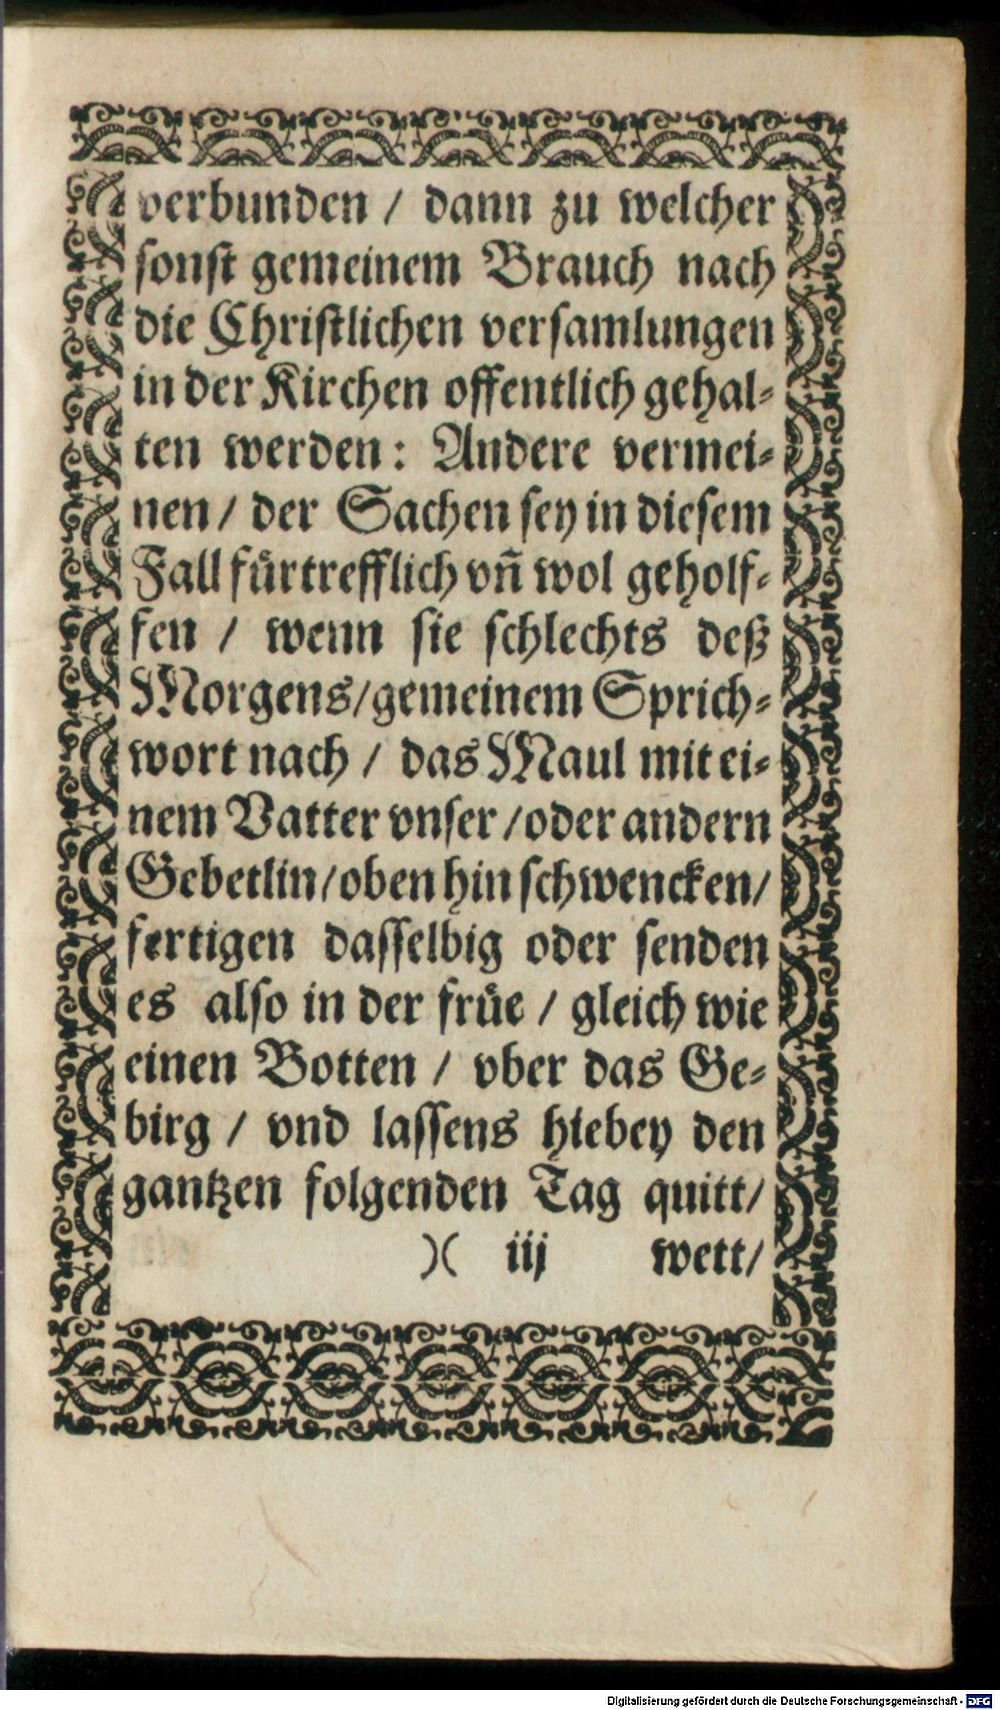 verbunden / dann zu welcher
sonst gemeinem Brauch nach
die Christlichen versamlungen
in der Kirchen offentlich gehal⸗
ten werden: Andere vermei⸗
nen / der Sachen sey in diesem
Fall fürtrefflich vñ wol geholf⸗
fen / wenn sie schlechts deß
Morgens/gemeinem Sprich⸗
wort nach / das Maul mit ei⸗
nem Vatter vnser /oder andern
Gebetlin/oben hin schwencken/
fertigen dasselbig oder senden
es also in der früe / gleich wie
einen Botten / vber das Ge⸗
birg / vnd lassens hiebey den
gantzen folgenden Tag quitt/
)( iij wett/
Digitalisierung gefördert durch die Deutsche Forschungsgemeinschaft - DFG